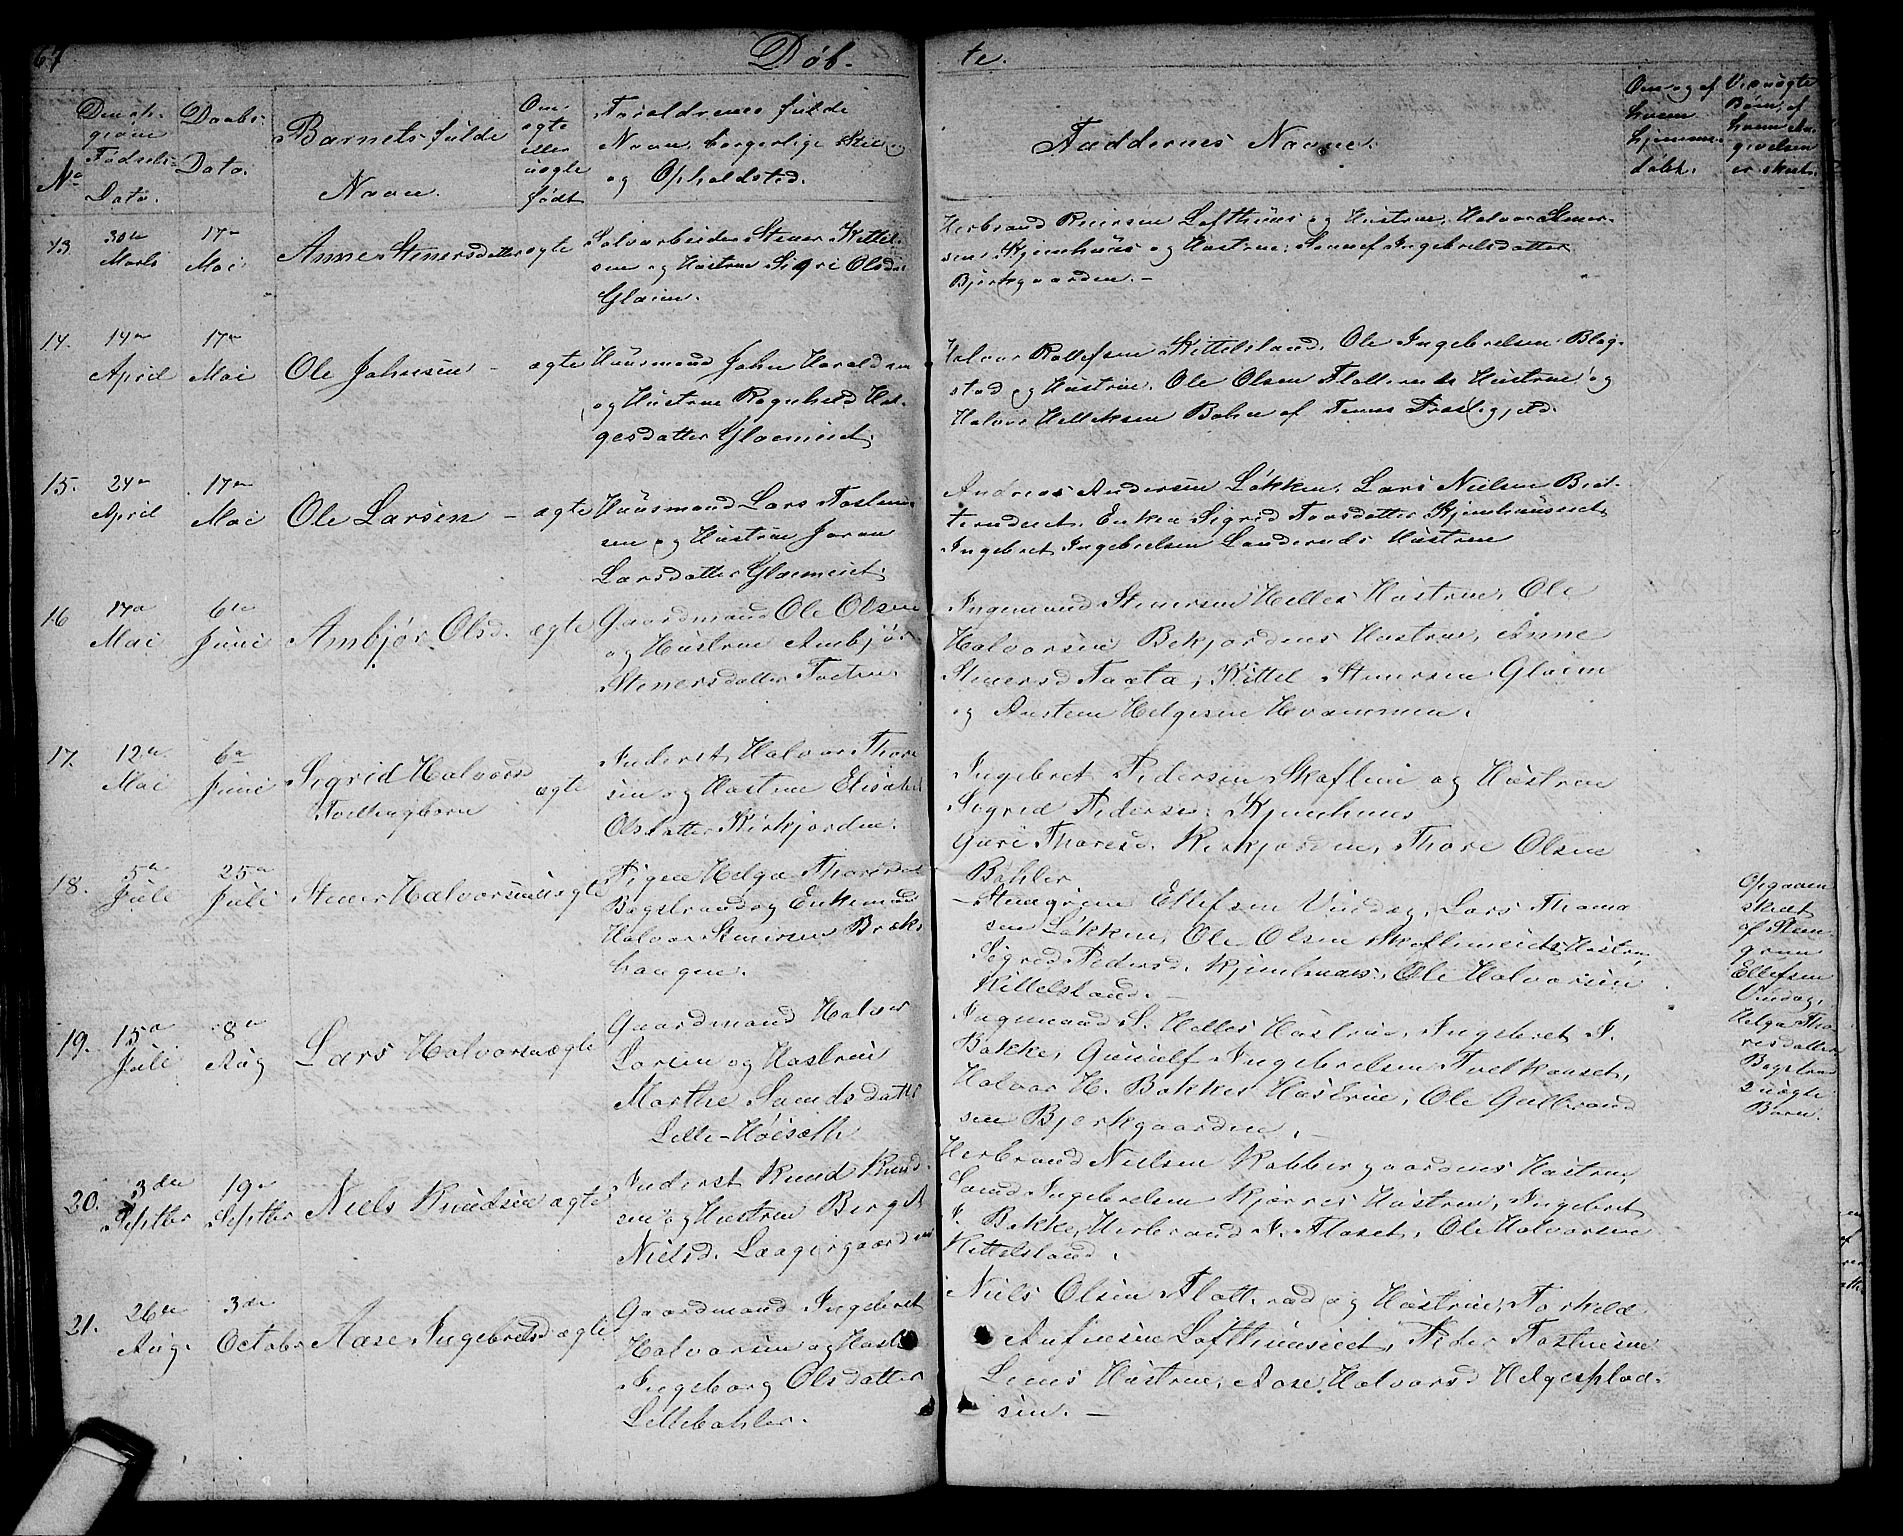 67
Døb-
te.
No
Den ei-
givne
Fødsels-
Dato.
Daabs-
Dato.
Barnets fulde
Navn.
Om
ægte
eller
uægte
født
Forældrenes fulde
Navn, borgerlige Stil.
og Opholdsted.
Faddernes Navne.
Om og af
hvem
hjemme-
døbt.
Ved uægte
Børn, af
hvem An-
givelsen
er skeet.
13.
30te
Marts
17de
Mai
Anne Stenersdatter
ægte
Selvarbeider Stener Kittel-
sen og Hustrue Sigri Olsd.
Glaim.
Herbrand Reiersen Lofthuus og Hustrue, Halvor Stener-
sen Kjemhuus og Hustrue, Sønnef Ingebretsdatter
Bjerkgaarden. -
14.
14de
April
17de
Mai
Ole Johnsen -
ægte
Huusmand John Haraldsen
og Hustrue Ragnhild Hel-
gesdatter Glaimeiet.
Halvor Rollefsen Kittelsland, Ole Ingebretsen Blag-
stad og Hustrue, Ole Olsen Flatteruds Hustrue og
Halvor Helleksen Bohn af Præstegjeld.
15.
24de
April
17de
Mai
Ole Larsen -
ægte
Huusmand Lars Torsten-
sen og Hustrue Joran
Larsdatter Glaimeiet.
Andreas Andersen Løkken, Lars Nielsen
Enken Sigrid Kjemhuuseiet,
Ingebret Ingebretsen Landeruds Hustrue
16
17de
Mai
6te
Juni
Ambjør Olsd.
ægte
Gaardmand Ole Olsen
og Hustrue Ambjør
Stenersdatter
Ingemund Stenersen Helles Hustrue, Ole
Halvorsen Bekjordens Hustrue, Anne
Stenersd Kittel Stenersen Glaim
og Austen Helgesen Hvammen.
17.
12te
Mai
6te
Juni
Sigrid Halvorsd
Tvillingbørn
ægte
Inderst Halvor Thore
sen og Hustrue Elisabet
Olsdatter Kirkjorden.
Ingebret Pedersen Skaflem og Hustrue
Sigrid Pedersd. Kjemhuus
Guri Thoresd. Kirkjorden, Thore Olsen
Bahler
18.
5te
Juli
25de
Juli
Stener Halvorsen
uægte
Pigen Helga Thoresd
Bagstrand og Enkemand
Halvor Stenersen Bræk-
haugen.
- Stengrim Ellefsen Vindeg, Lars Thoma
sen Løkken, Ole Olsen Skaflemeiets Hustrue
Sigrid Pedersd. Kjemhuus, Ole Halvorsen
Kittelsland. -
Opgaven
skeet
af Sten-
grim
Ellefsen
Vindeg,
Helga Tho-
resdatter
Bagstrand
2 uægte
Børn.
19.
15de
Juli
8de
Aug
Lars Halvorsen
ægte
Gaardmand Halvor
Larsen og Hustrue
Marthe Samdsdatter
Lille-Høisæth
Ingemund S. Helles Hustrue, Ingebret I.
Bakke, Gunulf Ingebretsen
Halvor H. Bakkes Hustrue, Ole Gulbrand
sen Bjerkgaarden. -
20.
3die
Septbr
19de
Septbr
Niels Knudsen
ægte
Inderst Knud Knud-
sen og Hustrue Birgit
Nielsd. Laagergaarden
Herbrand Nielsen Kobbergaardens Hustrue,
Samd Ingebretsen Kjørres Hustrue, Ingebret
I. Bakke, Herbrand I. Flaset, Ole Halvorsen
Kittelsland.
21.
26de
Aug.
3die
Octobr
Aase Ingebretsd
ægte
Gaardmand Ingebret
Halvorsen og Hustrue
Ingeborg Olsdatter
Lillebahler.
Niels Olsen Flatterud og Hustrue, Torkild
Anfinsen Lofthuuseiet, Peder Tostensen
Liens Hustrue, Aase Halvorsd Helgesplad-
sen. -